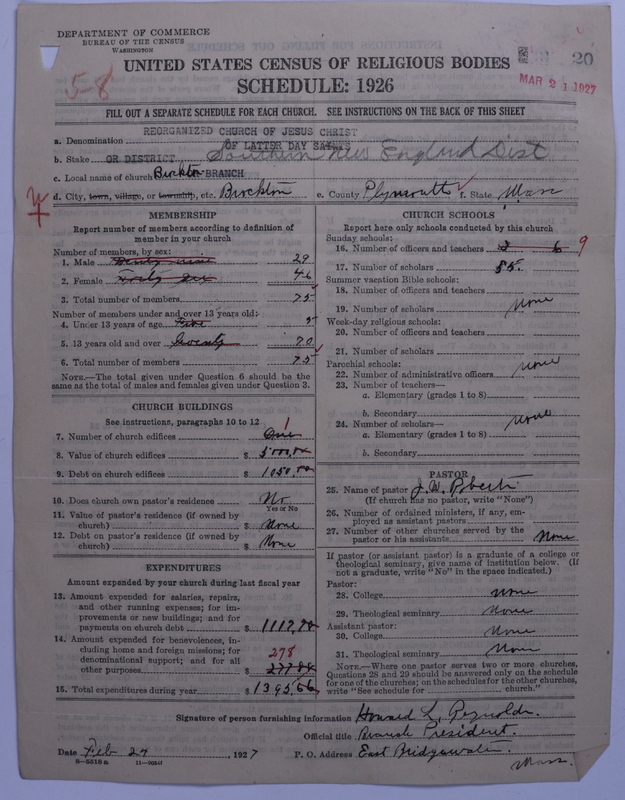 DEPARTMENT OF COMMERCE
BUREAU OF THE CENSUS
WASHINGTON
20
MAR 21 1927
5-8
UNITED STATES CENSUS OF RELIGIOUS BODIES
SCHEDULE: 1926
FILL OUT A SEPARATE SCHEDULE FOR EACH CHURCH. SEE INSTRUCTIONS ON THE BACK OF THIS SHEET
REORGANIZED CHURCH OF JESUS CHRIST
a. Denomination OF LATTER DAY SAINTS
b. Stake OR DISTRICT Southern New England Dist
c. Local name of church Brockton BRANCH
d. City, town, village, or township, etc. Brockton e. County Plymouth f. State Mass
MEMBERSHIP
Report number of members according to definition of
member in your church
Number of members, by sex:
1. Male Twenty nine 29
2. Female Forty Six 46
3. Total number of members 75
Number of members under and over 13 years old:
4. Under 13 years of age Five 5
5. 13 years old and over Seventy 70
6. Total number of members 75
NOTE.—The total given under Question 6 should be
same as the total of males and females given under Question 3.
CHURCH BUILDINGS
See instructions, paragraphs 10 to 12
1
7. Number of church edifices One
8. Value of church edifices $ 5000.00
9. Debt on church edifices $ 1050.00
10. Does church own pastor's residence No
Yes or No
11. Value of pastor's residence (if owned by
church) $ None
12. Debt on pastor's residence (if owned by
church) $ None
EXPENDITURES
Amount expended by your church during last fiscal year
13. Amount expended for salaries, repairs,
and other running expenses; for im-
provements or new buildings; and for
payments on church debt $
14. Amount expended for benevolences, in-
cluding home and foreign missions; for
denominational support; and for all
other purposes $ 278
15. Total expenditures during year $ 1395.66
CHURCH SCHOOLS
Report here only schools conducted by this church
Sunday schools:
16. Number of officers and teachers 9
17. Number of scholars 55.
Summer vacation Bible schools:
18. Number of officers and teachers
19. Number of scholars None
Week-day religious schools:
20. Number of officers and teachers
21. Number of scholars
Parochial schools:
22. Number of administrative officers None
23. Number of teachers—
a. Elementary (grades 1 to 8)
b. Secondary
24. Number of scholars— None
a. Elementary (grades 1 to 8)
b. Secondary
PASTOR
25. Name of pastor J. W.
(If church has no pastor, write "None")
26. Number of ordained ministers, if any, em-
ployed as assistant pastors
27. Number of other churches served by the
pastor or his assistants None
If pastor (or assistant pastor) is a graduate of a college or
theological seminary, give name of institution below. (If
not a graduate, write "No" in the space indicated.)
Pastor:
28. College None
29. Theological seminary None
Assistant pastor:
30. College None
31. Theological seminary None
NOTE.—Where one pastor serves two or more churches,
Questions 28 and 29 should be answered only on the schedule
for one of the churches; on the schedules for the other churches,
write "See schedule for church."
Signature of person furnishing information Howard L. Reynolds.
Official title Branch President.
Date Feb 27, 1927 P. O. Address East Bridgewater.
Mass.